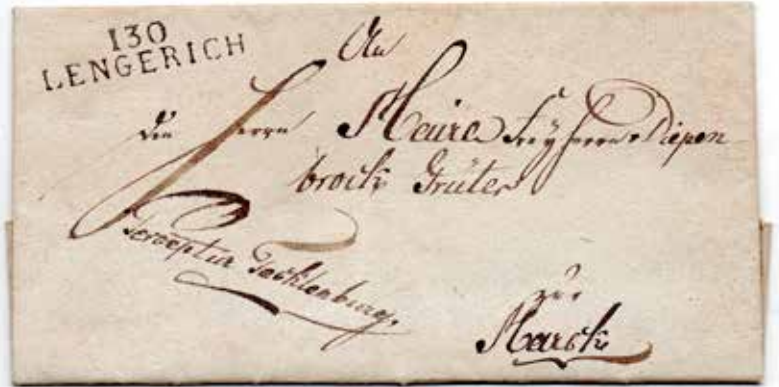 130
LENGERICH
An
den Herrn Maire Freyherrn v Diepen
brock Grüter
Perceptur Tecklenburg.
zur
Marck